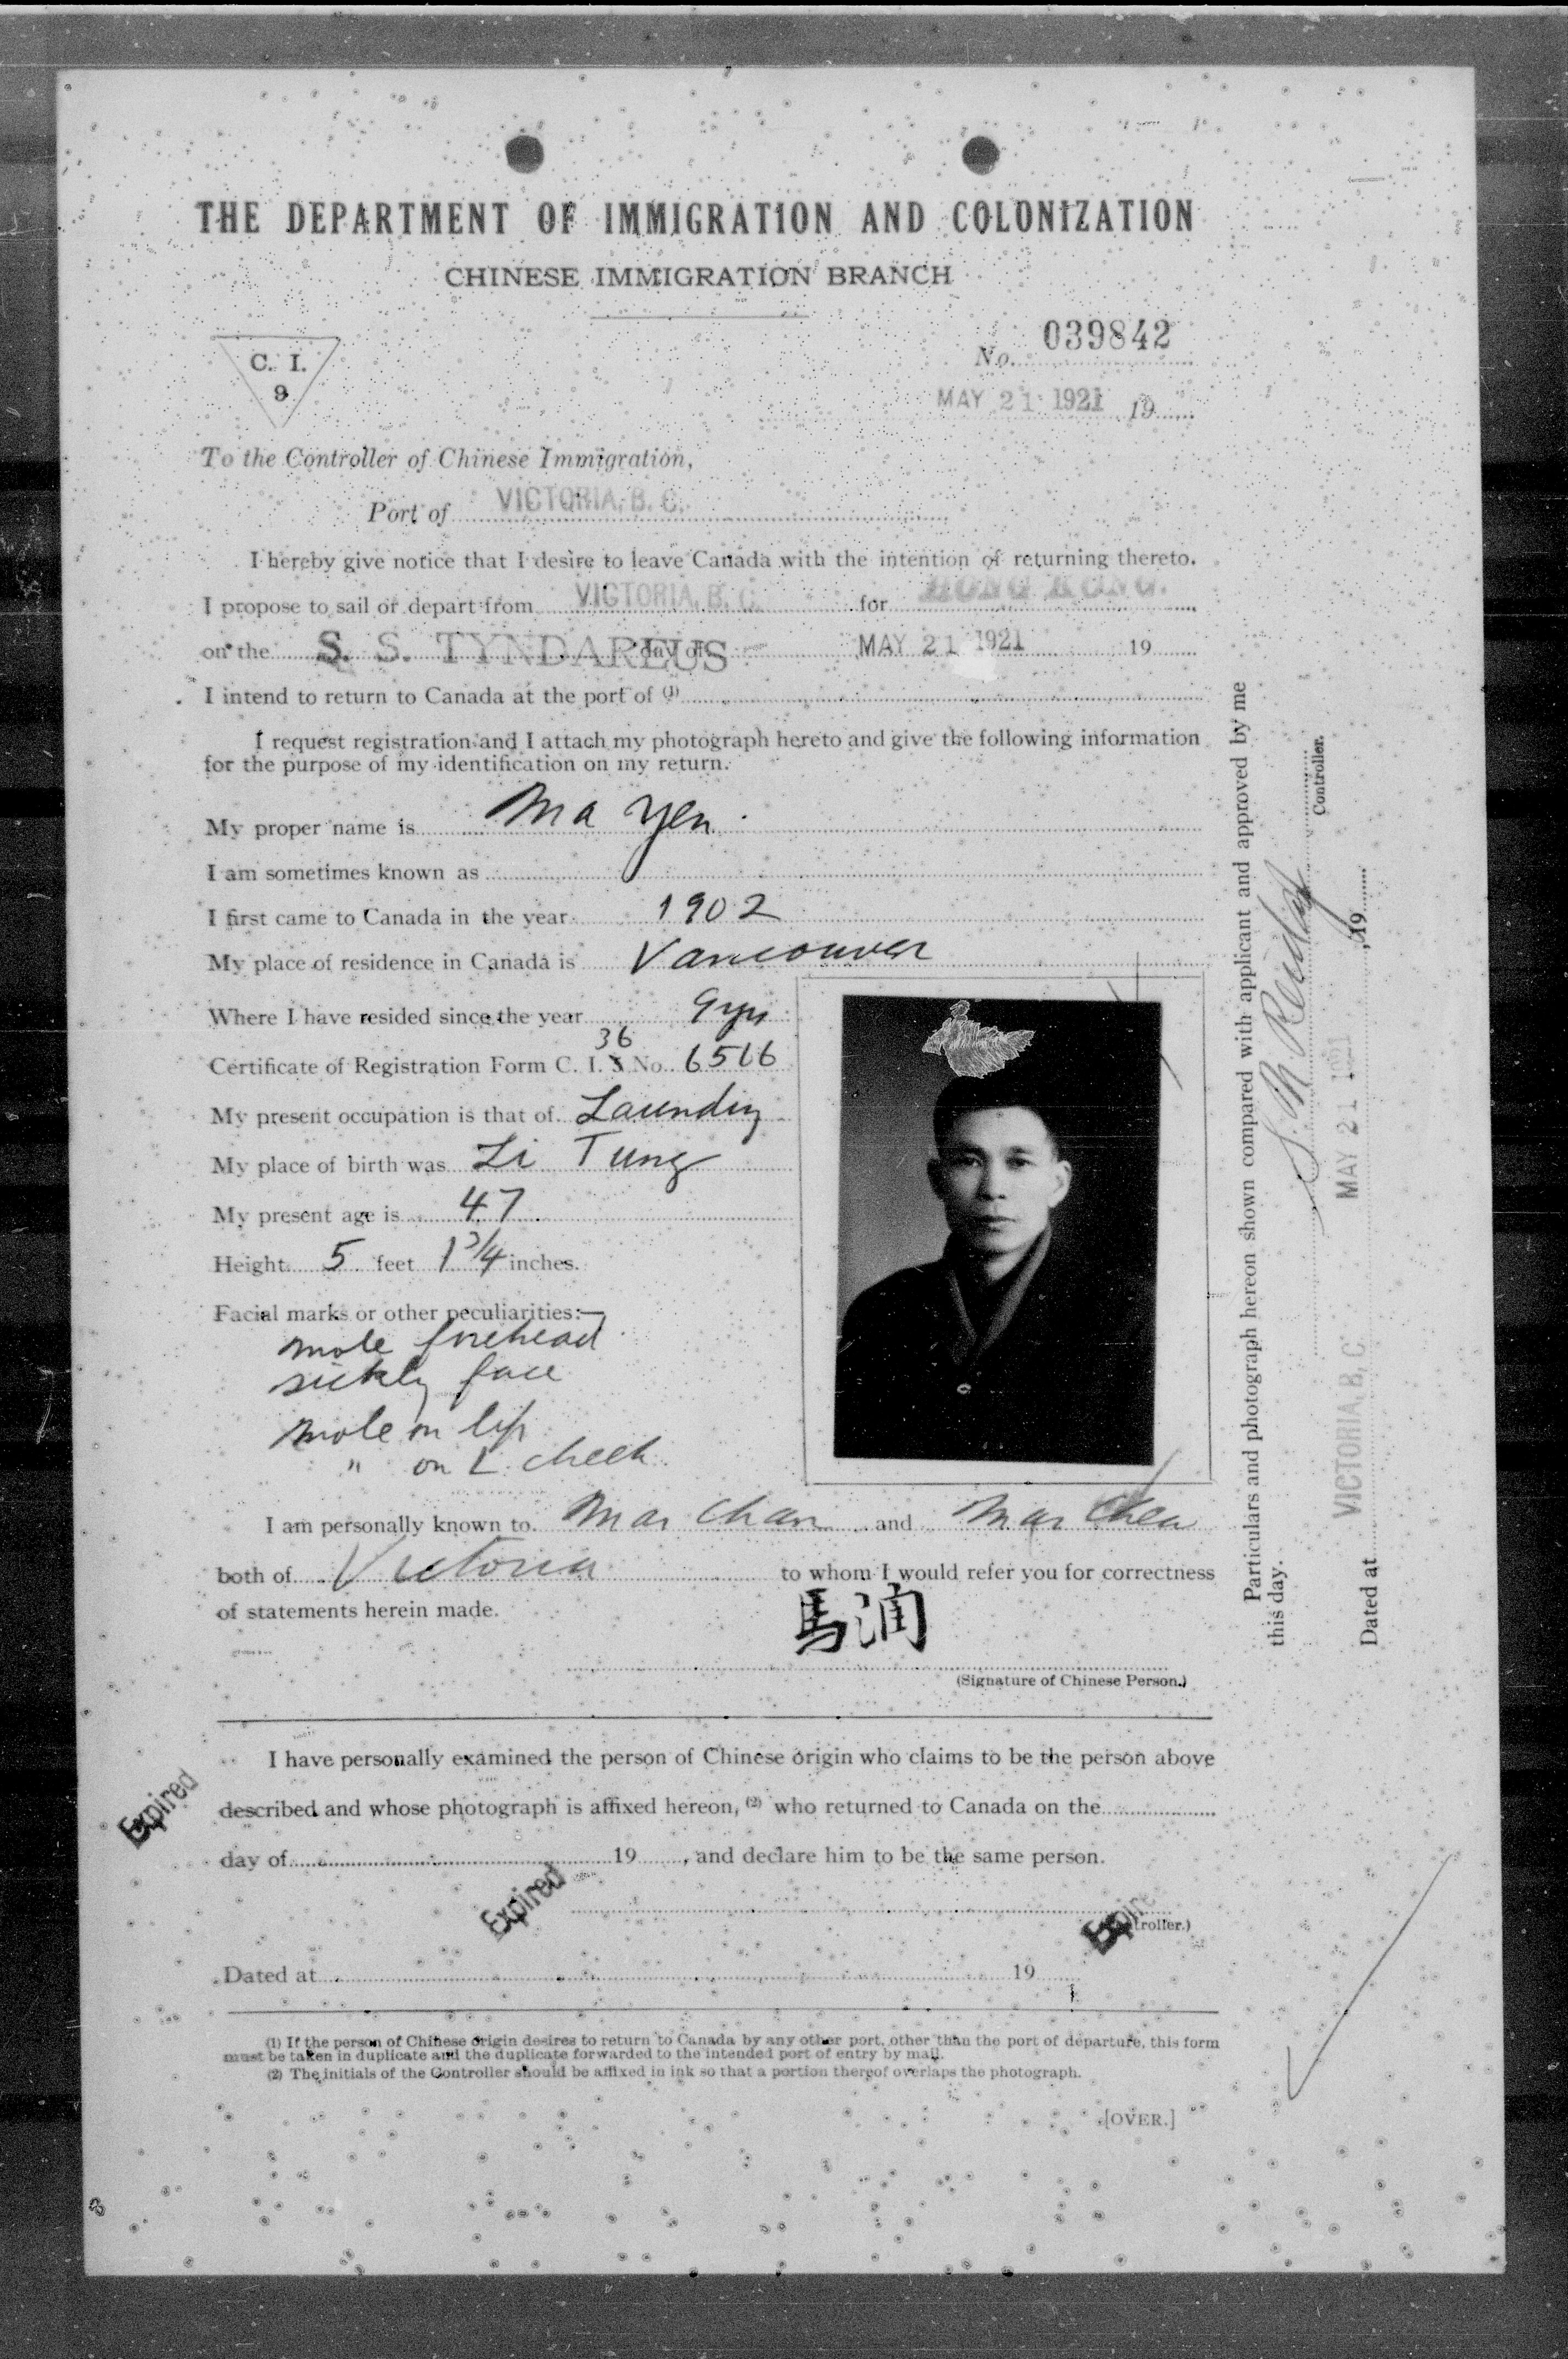 THE DEPARTMENT OF IMMIGRATION AND COLONIZATION
CHINESE IMMIGRATION BRANCH
C. I.
9
No. 039842
MAY 21 1921 19
To the Controller of Chinese Immigration,
Port of VICTORIA, B. C.
I hereby give notice that I desire to leave Canada with the intention of returning thereto.
I propose to sail or depart from VICTORIA, B. C. for HONG KONG.
on the S. S. TYNDAREUS day of MAY 21 1921 19
I intend to return to Canada at the port of (1)
I request registration and I attach my photograph hereto and give the following information
for the purpose of my identification on my return.
My proper name is Ma Yen
I am sometimes known as
I first came to Canada in the year 1902
My place of residence in Canada is Vancouver
Where I have resided since the year 9 yrs
36
Certificate of Registration Form C. I. 5 No. 6516
My present occupation is that of Laundry
My place of birth was Li Tung
My present age is 47
Height 5 feet 1 3/4 inches.
Facial marks or other peculiarities:—
mole forehead
sickly face
mole on lip
" on L. cheek
I am personally known to Mar Chan and Mar Chew
both of Victoria to whom I would refer you for correctness
of statements herein made.
馬润
(Signature of Chinese Person.)
I have personally examined the person of Chinese origin who claims to be the person above
described and whose photograph is affixed hereon, (2) who returned to Canada on the
day of 19 , and declare him to be the same person.
Expired
Expired
Expire
troller.)
Dated at 19
(1) If the person of Chinese origin desires to return to Canada by any other port, other than the port of departure, this form
must be taken in duplicate and the duplicate forwarded to the intended port of entry by mail.
(2) The initials of the Controller should be affixed in ink so that a portion thereof overlaps the photograph.
[OVER.]
Particulars and photograph hereon shown compared with applicant and approved by me
this day.
Controller.
Dated at VICTORIA, B, C. MAY 21 1921 , 19